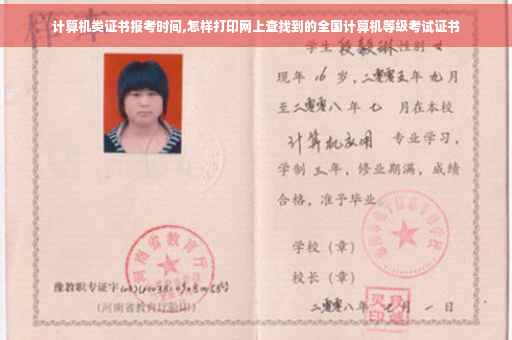 计算机类证书报考时间,怎样打印网上查找到的全国计算机等级考试证书
学生段毅琳性别女
现年16岁,二零零五年九月
至二零零八年七月在本校
计算机应用专业学习,
学制三年,修业期满,成绩
合格,准予毕业
学校(章)
校长(章)
二零零八年七月一日
河南省教育厅
豫教职专证字
(河南省教育厅监印)